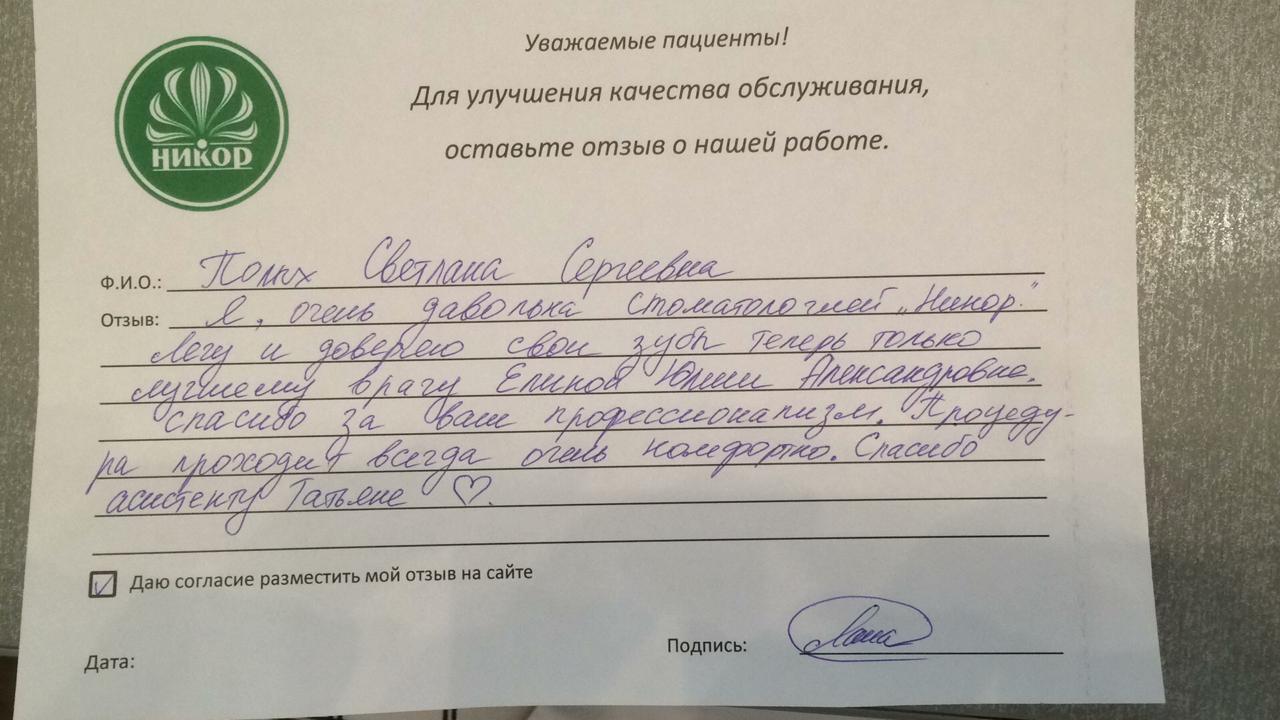 Уважаемые пациенты!
Для улучшения качества обслуживания,
оставьте отзыв о нашей работе.
НИКОР
Ф.И.О.: Светлана Сергеевна
Отзыв: Я, очень давольна стоматологией „Никор."
Лечу и доверяю свои зубы теперь только
лучшему врагу Елиной Юлии Александровне.
Спасибо за ваш профессионализм. Процеду-
ра проходит всегда очень комфортно. Спасибо
асистенту Татьяне ♡.
Даю согласие разместить мой отзыв на сайте
Дата:
Подпись: